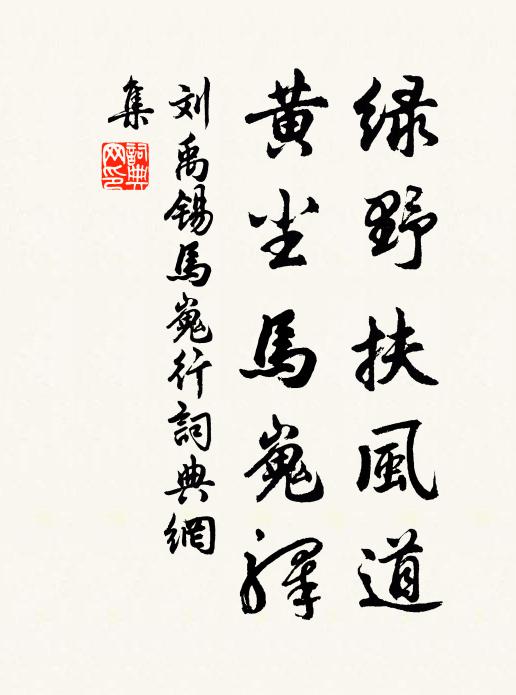 绿野扶風道
黄尘馬嵬驛
刘禹锡馬嵬行詞典網
集
詞典网印